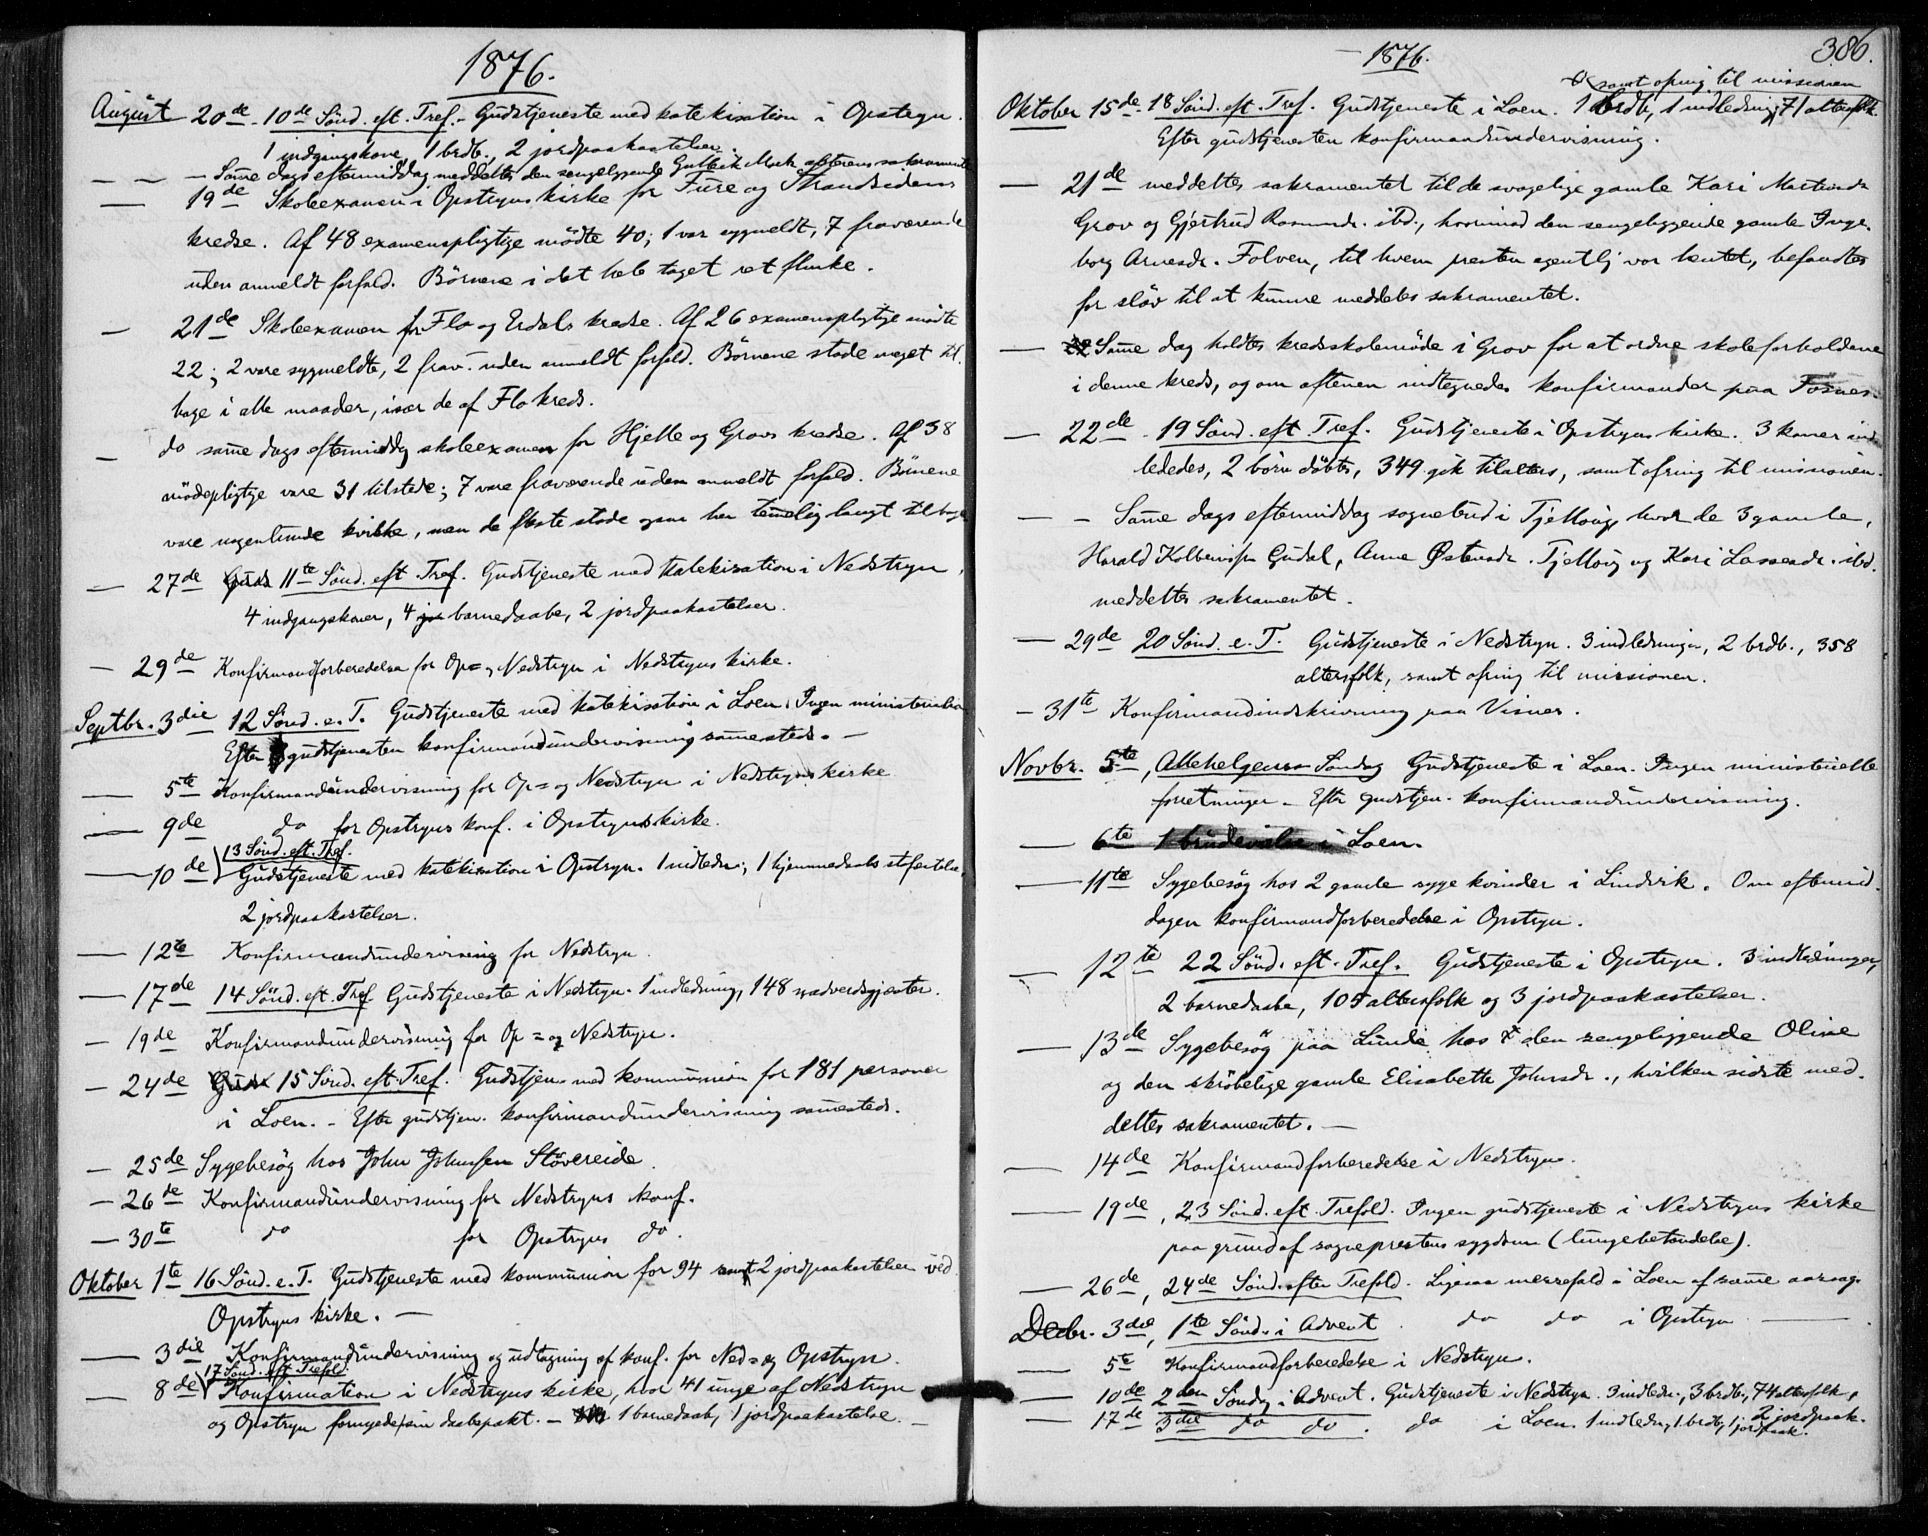 1876.
August 20de 10de Sönd. eft. Tref. Gudstjeneste med katekisation i Opstryn.
1 indgangskone, 1 brdb., 2 jordpaakastelser.
— — — Samme dags eftermiddag meddeltes den sengeliggende Gutterik Mork alterens sakramente
— 19de Skoleexamen i Opstryns kirke for Fure og Strandsidens
kredse. Af 48 examenspligtige mödte 40; 1 var sygmeldt, 7 fraværende
uden anmeldt forfald. Börnene i det hele taget ret flinke.
— 21de Skoleexamen for Flo og Erdals kredse. Af 26 examenspligtige mödte
22; 2 vare sygmeldte, 2 frav. uden anmeldt forfald. Börnene stode meget til-
bage i alle maader, især de af Flo kreds.
— do samme dags eftermiddag skoleexamen for Hjelle og Grovs kredse. Af 38
mödepligtige vare 31 tilstede; 7 vare fraværende uden anmeldt forfald. Börnene
vare nogenlunde kvikke, men de fleste stode ogsaa her temmelig langt tilbage
— 27de Guds 11te Sönd. eft. Tref. Gudstjeneste med katekisation i Nedstryn,
4 indgangskoner, 4 jor barnedaabe, 2 jordpaakastelser.
— 29de Konfirmandforberedelse for Op= og Nedstryn i Nedstryns kirke.
Septbr. 3die 12 Sönd. e. T. Gudstjeneste med katekisation i Loen. Ingen ministerialia
Efter gudstjenesten konfirmandundervisning sammesteds. —
— 5te Konfirmandundervisning for Op= og Nedstryn i Nedstryns kirke
— 9de do for Opstryns konf. i Opstryns kirke.
13 Sönd. eft. Tref.
— 10de Gudstjeneste med katekisation i Opstryn. 1 indledn., 1 hjemmedaabs stadfæstelse,
2 jordpaakastelser.
— 12te Konfirmandundervisning for Nedstryn.
— 17de 14 Sönd. eft. Tref Gudstjeneste i Nedstryn. 1 indledning, 148 nadverdsgjester.
— 19de Konfirmandundervisning for Op= og Nedstryn.
— 24de Guds 15 Sönd. eft. Tref. Gudstjen. med kommunion for 181 personer
i Loen. — Efter gudstjen. konfirmandundervisning sammesteds.
— 25de Sygebesög hos John Johnsen Stövereide.
— 26de Konfirmandundervisning for Nedstryns konf.
— 30te do for Opstryns do.
Oktober 1te 16 Sönd. e. T. Gudstjeneste med kommunion for 94 samt 2 jordpaakastelser ved
Opstryns kirke. —
— 3die Konfirmandundervisning og udtagning af konf. for Ned= og Opstryn.
17 Sönd. eft. Trefold.
— 8de Konfirmation i Nedstryns kirke, hvor 41 unge af Nedstryn
og Opstryn fornyede sin daabspakt. — 1 barnedaab, 1 jordpaakastelse. —
— 1876. 386.
samt ofring til missionen
Oktober 15de 18 Sönd. eft. Tref. Gudstjeneste i Loen. 1 brdb, 1 indledning, 71 altersfolk.
Efter gudstjenesten konfirmandundervisning.
— 21de meddeltes sakramentet til de svagelige gamle Kari Martinsdr.
Grov og Gjertrud Rasmusdr. ibd., hvorimod den sengeliggende gamle Inge-
borg Arnesdr. Folven, til hvem presten egentlig var hentet, befandtes
for slöv til at kunne meddeles sakramentet.
— 22 Samme dag holdtes kredsskolemöde i Grov for at ordne skoleforholdene
i denne kreds, og om aftenen indtegnedes konfirmander paa Fosnes.
— 22de 19 Sönd. eft. Tref. Gudstjeneste i Opstryns kirke. 3 koner ind-
lededes, 2 börn döbtes, 349 gik tilalters, samt ofring til missionen.
— — Samme dags eftermiddag sognebud i Tjellaug, hvor de 3 gamle,
Harald Kolbeinsen Gudal, Anne Östensdr. Tjellaug og Kari Lassesdr. ibd.
meddeltes sakramentet.
— 29de 20 Sönd. e. T. Gudstjeneste i Nedstryn. 3 indledninger, 2 brdb., 358
altersfolk, samt ofring til missionen.
— 31te Konfirmandindskrivning paa Visnes.
Novbr. 5te, Allehelgens Söndag Gudstjeneste i Loen. Ingen ministerielle
forretninger — Efter gudstjen. konfirmandundervisning.
— 6te 1 brudevielse i Loen.
— 11te Sygebesög hos 2 gamle syge kvinder i Lindvik. Om eftermid-
dagen konfirmandforberedelse i Opstryn.
— 12te 22 Sönd. eft. Tref. Gudstjeneste i Opstryn. 3 indledninger,
2 barnedaabe, 105 altersfolk og 3 jordpaakastelser.
— 13de Sygebesög paa Lunde hos den sengeliggende Oline
og den skröbelige gamle Elisabette Johnsdr., hvilken sidste med-
deltes sakramentet. —
— 14de Konfirmandforberedelse i Nedstryn.
— 19de, 23 Sönd. eft. Trefold. Ingen gudstjeneste i Nedstryns kirke
paa grund af sogneprestens sygdom (lungebetændelse).
— 26de, 24de Sönd. efter Trefold. Ligesaa messefald i Loen af samme aarsag.
Decbr. 3die, 1te Sönd. i Advent. do do i Opstryn —
— 5te Konfirmandforberedelse i Nedstryn.
— 10de 2den Söndag i Advent. Gudstjeneste i Nedstryn. 3 indledn., 3 brdb., 74 altersfolk, 2 jordpaak.
— 17de 3die do do. do i Loen. 1 indledn., 1 brdb, 1 jordpaak.